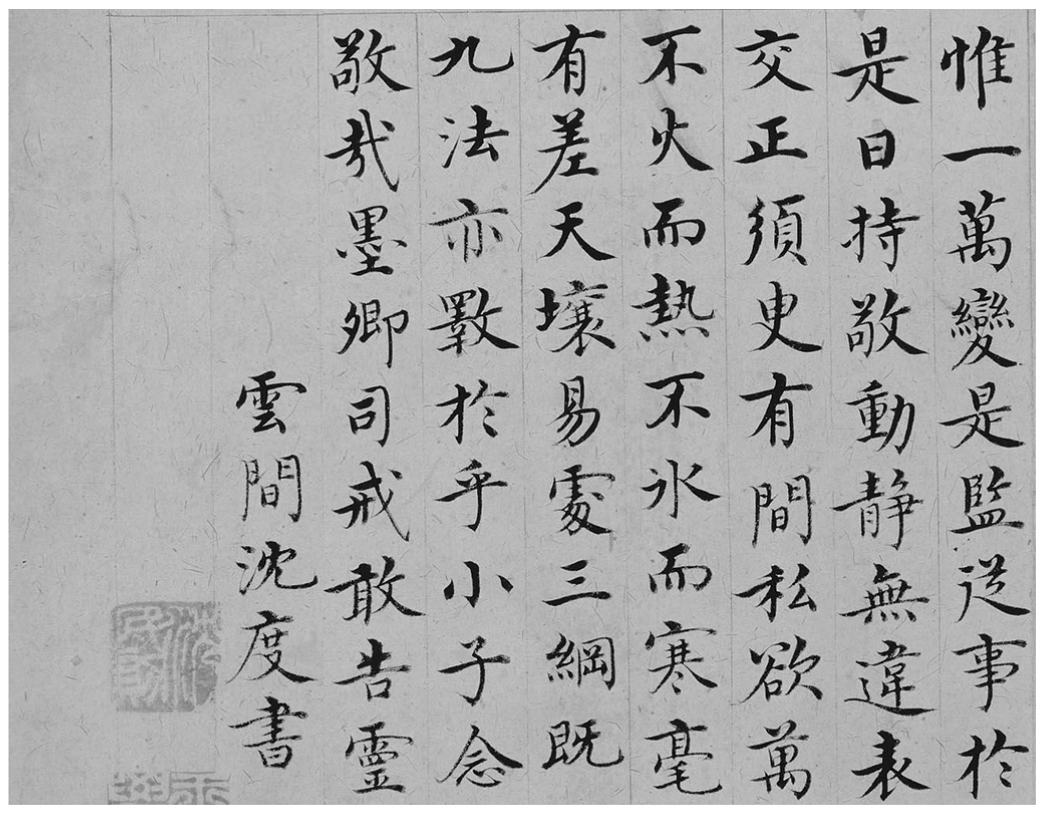 惟一萬變是監從事於
是日持敬動靜無違表
交正須臾有間私欲萬
不火而熱不氷而寒毫
有差天壤易處三綱既
九法亦斁於乎小子念
敬哉墨卿司戒敢告靈
雲間沈度書